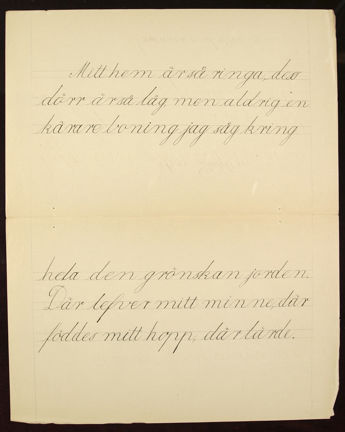 Mitt hem är så ringa, dess
dörr är så låg men aldrig en
kärare boning jag såg kring
hela den grönskan jorden.
Där lefver mitt minne, där
föddes mitt hopp, där lärde.